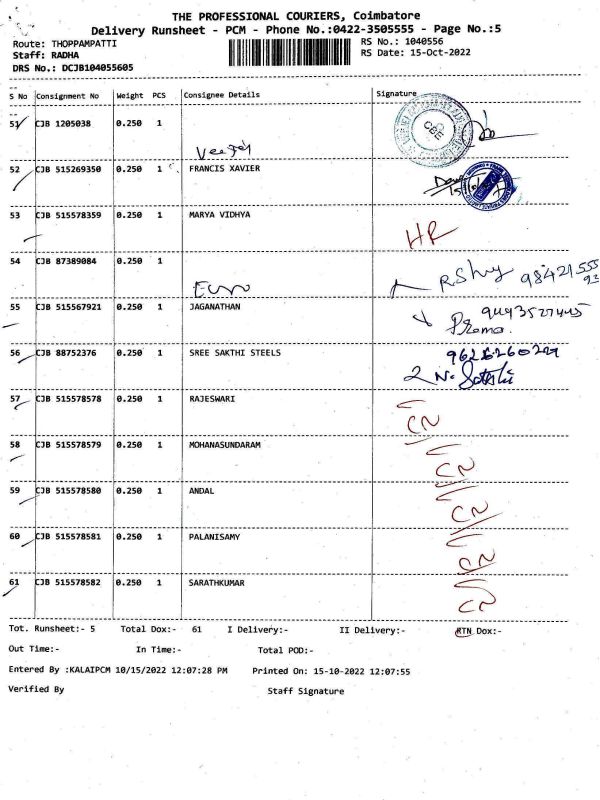 THE PROFESSIONAL COURIERS, Coimbatore
Delivery Runsheet - PCM - Phone No.:0422-3505555 - Page No.:5
Route: THOPPAMPATTI RS No.: 1040556
Staff: RADHA RS Date: 15-Oct-2022
DRS No.: DCJB104055605
S No Consignment No Weight PCS Consignee Details Signature
51 CJB 1205038 0.250 1
CBE
52 CJB 515269350 0.250 1 FRANCIS XAVIER
53 CJB 515578359 0.250 1 MARYA VIDHYA
HR
54 CJB 87389084 0.250 1
55 CJB 515567921 0.250 1 JAGANATHAN
56 CJB 88752376 0.250 1 SREE SAKTHI STEELS
57 CJB 515578578 0.250 1 RAJESWARI
CN
58 CJB 515578579 0.250 1 MOHANASUNDARAM
CN
59 CJB 515578580 0.250 1 ANDAL
CN
60 CJB 515578581 0.250 1 PALANISAMY
CN
61 CJB 515578582 0.250 1 SARATHKUMAR
CN
Tot. Runsheet:- 5 Total Dox:- 61 I Delivery:- II Delivery:- RTN Dox:-
Out Time:- In Time:- Total POD:-
Entered By :KALAIPCM 10/15/2022 12:07:28 PM Printed On: 15-10-2022 12:07:55
Verified By Staff Signature